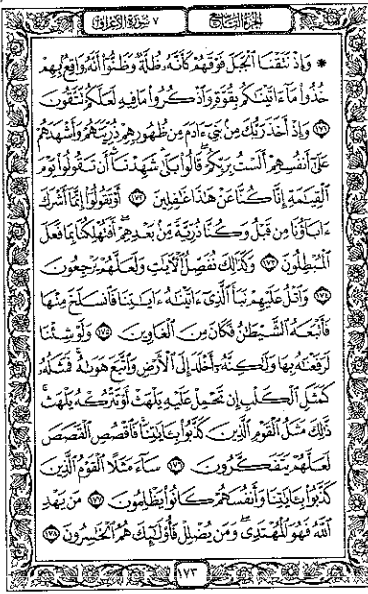 الجزء التاسع
٧ سورة الأعراف
* وَإِذْ نَتَقْنَا ٱلْجَبَلَ فَوْقَهُمْ كَأَنَّهُۥ ظُلَّةٌ وَظَنُّوٓا۟ أَنَّهُۥ وَاقِعٌۢ بِهِمْ
خُذُوا۟ مَآ ءَاتَيْنَٰكُم بِقُوَّةٍ وَٱذْكُرُوا۟ مَا فِيهِ لَعَلَّكُمْ تَتَّقُونَ
١٧١ وَإِذْ أَخَذَ رَبُّكَ مِنۢ بَنِىٓ ءَادَمَ مِن ظُهُورِهِمْ ذُرِّيَّتَهُمْ وَأَشْهَدَهُمْ
عَلَىٰٓ أَنفُسِهِمْ أَلَسْتُ بِرَبِّكُمْ ۖ قَالُوا۟ بَلَىٰ ۛ شَهِدْنَآ ۛ أَن تَقُولُوا۟ يَوْمَ
ٱلْقِيَٰمَةِ إِنَّا كُنَّا عَنْ هَٰذَا غَٰفِلِينَ ١٧٢ أَوْ تَقُولُوٓا۟ إِنَّمَآ أَشْرَكَ
ءَابَآؤُنَا مِن قَبْلُ وَكُنَّا ذُرِّيَّةً مِّنۢ بَعْدِهِمْ ۖ أَفَتُهْلِكُنَا بِمَا فَعَلَ
ٱلْمُبْطِلُونَ ١٧٣ وَكَذَٰلِكَ نُفَصِّلُ ٱلْءَايَٰتِ وَلَعَلَّهُمْ يَرْجِعُونَ
١٧٤ وَٱتْلُ عَلَيْهِمْ نَبَأَ ٱلَّذِىٓ ءَاتَيْنَٰهُ ءَايَٰتِنَا فَٱنسَلَخَ مِنْهَا
فَأَتْبَعَهُ ٱلشَّيْطَٰنُ فَكَانَ مِنَ ٱلْغَاوِينَ ١٧٥ وَلَوْ شِئْنَا
لَرَفَعْنَٰهُ بِهَا وَلَٰكِنَّهُۥٓ أَخْلَدَ إِلَى ٱلْأَرْضِ وَٱتَّبَعَ هَوَىٰهُ ۚ فَمَثَلُهُۥ
كَمَثَلِ ٱلْكَلْبِ إِن تَحْمِلْ عَلَيْهِ يَلْهَثْ أَوْ تَتْرُكْهُ يَلْهَث ۚ
ذَّٰلِكَ مَثَلُ ٱلْقَوْمِ ٱلَّذِينَ كَذَّبُوا۟ بِـَٔايَٰتِنَا ۚ فَٱقْصُصِ ٱلْقَصَصَ
لَعَلَّهُمْ يَتَفَكَّرُونَ ١٧٦ سَآءَ مَثَلًا ٱلْقَوْمُ ٱلَّذِينَ
كَذَّبُوا۟ بِـَٔايَٰتِنَا وَأَنفُسَهُمْ كَانُوا۟ يَظْلِمُونَ ١٧٧ مَن يَهْدِ
ٱللَّهُ فَهُوَ ٱلْمُهْتَدِى ۖ وَمَن يُضْلِلْ فَأُو۟لَٰٓئِكَ هُمُ ٱلْخَٰسِرُونَ ١٧٨
١٧٣